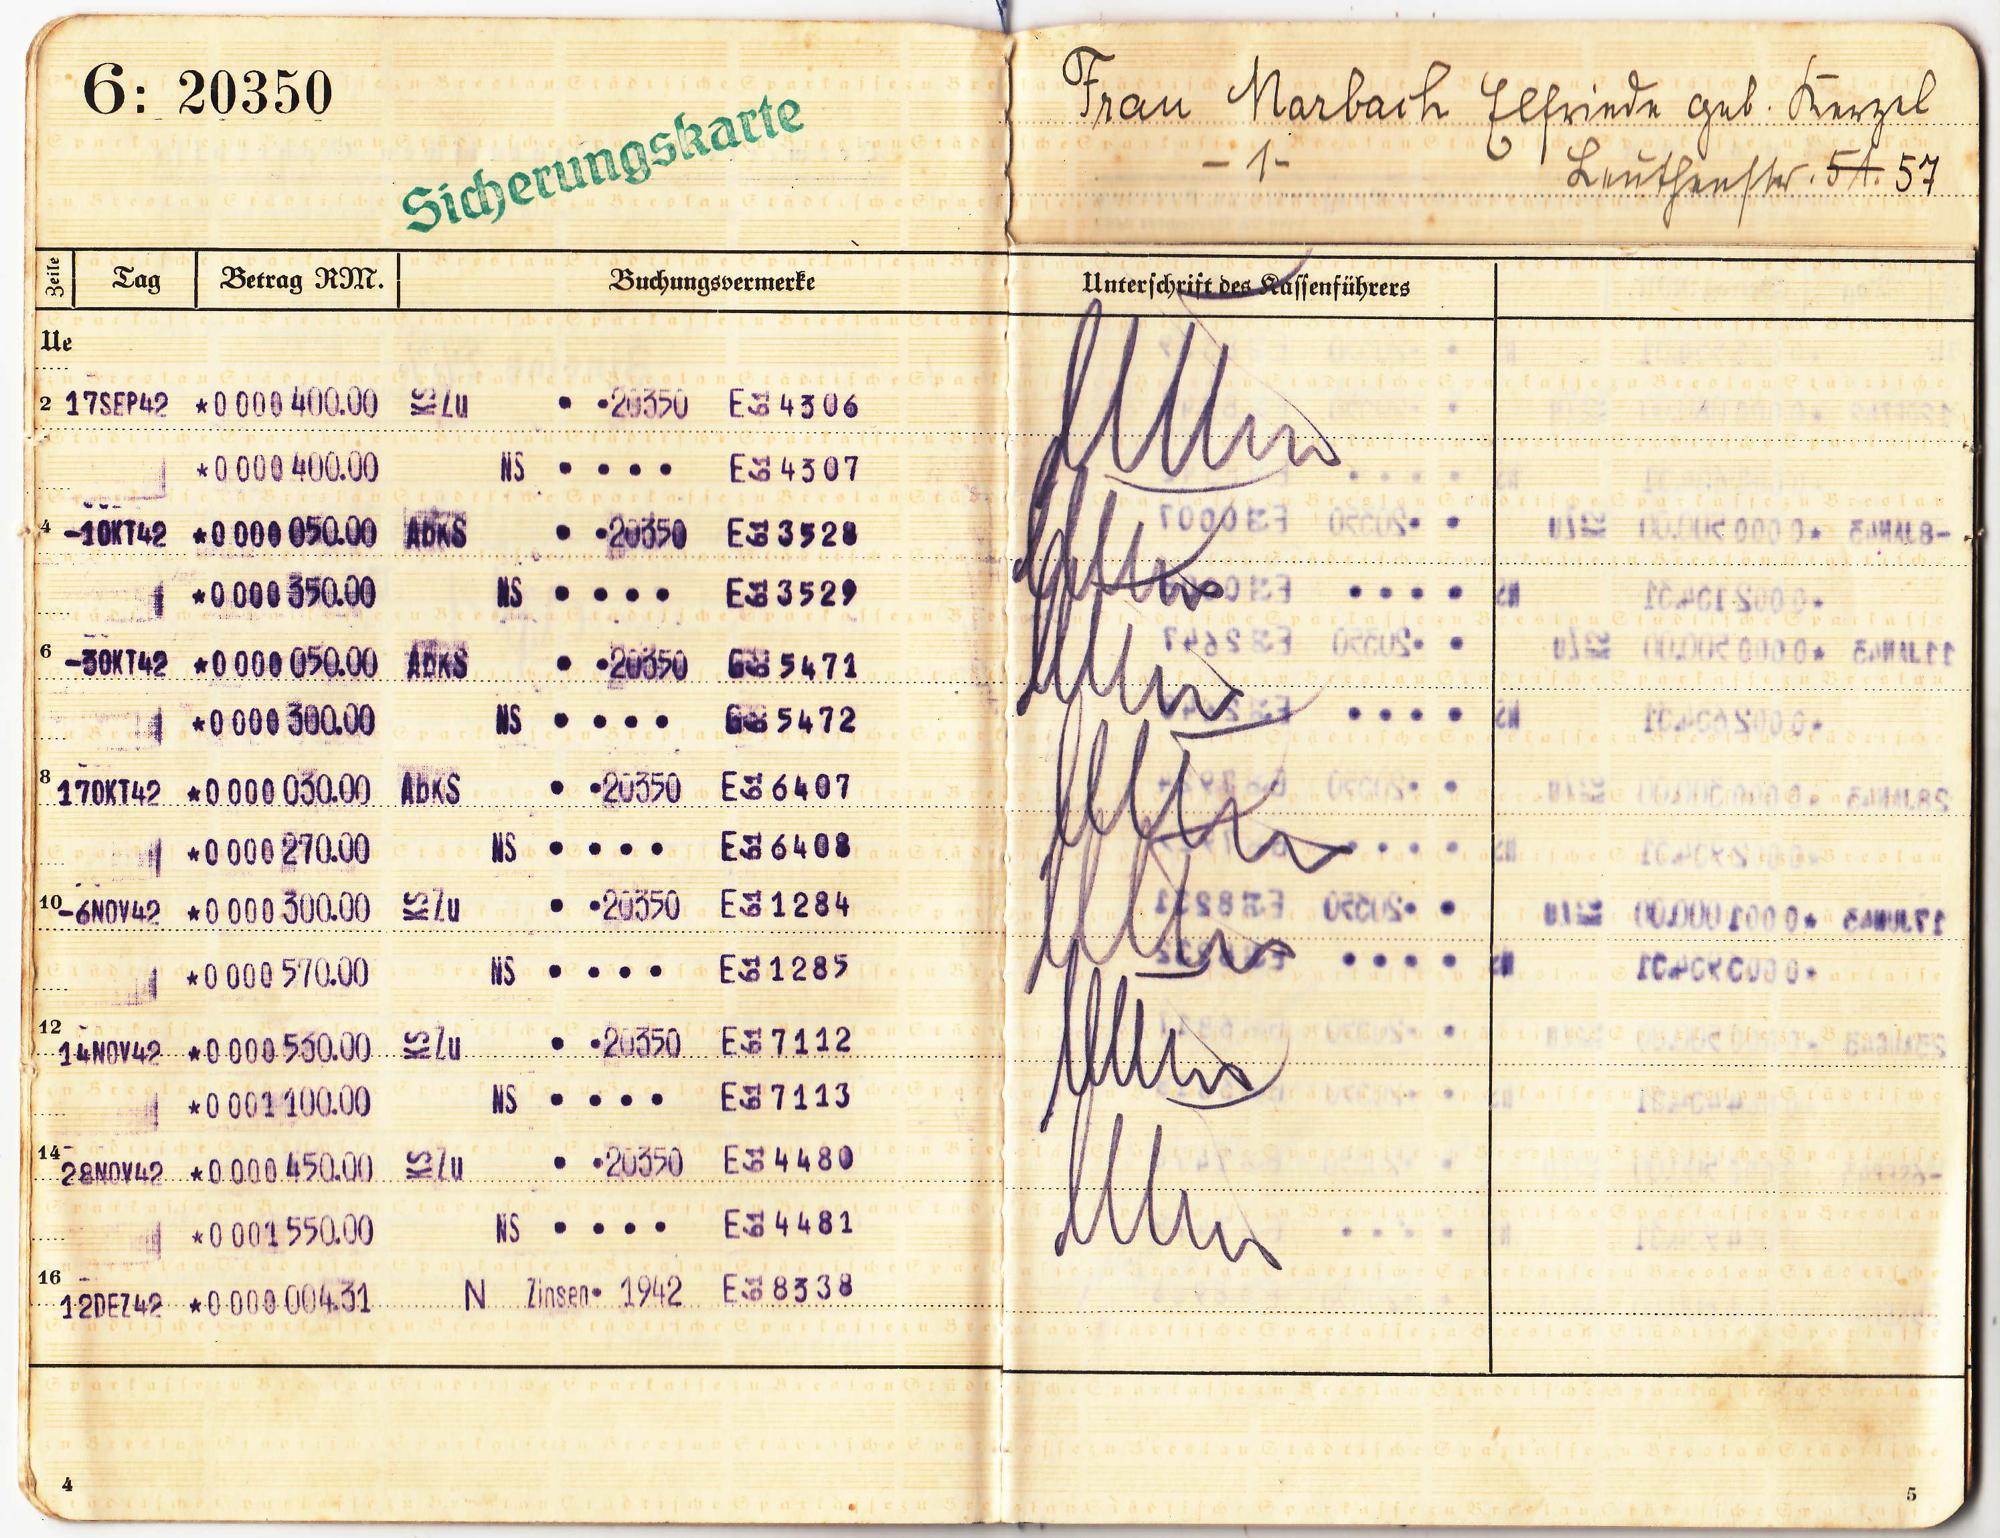 6: 20350
Sicherungskarte
Frau Marbach Elfriede geb. Kerzel
-1-
Leuthenstr. 51. 57
Zeile Tag Betrag RM. Buchungsvermerke Unterschrift des Kassenführers
Ue
2 17SEP42 *0000400.00 KSZu • •20350 E61 4306
*0000400.00 NS • • • • E61 4307
4 -1OKT42 *0000050.00 AbKS • •20350 E61 3528
*0000350.00 NS • • • • E61 3529
6 -3OKT42 *0000050.00 AbKS • •20350 5471
*0000300.00 NS • • • • 5472
8 17OKT42 *0000030.00 AbKS • •20350 E61 6407
*0000270.00 NS • • • • E61 6408
10 -6NOV42 *0000300.00 KSZu • •20350 E61 1284
*0000570.00 NS • • • • E61 1285
12 14NOV42 *0000530.00 KSZu • •20350 E61 7112
*0001100.00 NS • • • • E61 7113
14 28NOV42 *0000450.00 KSZu • •20350 E61 4480
*0001550.00 NS • • • • E61 4481
16 12DEZ42 *0000004.31 N Zinsen• 1942 E61 8338
4
5